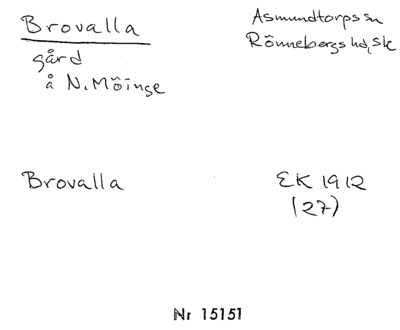 Brovalla
Asmundtorps sn
gård
Rönnebergs hd, Sk
å N. Möinge
Brovalla
EK 1912
(27)
Nr 15151